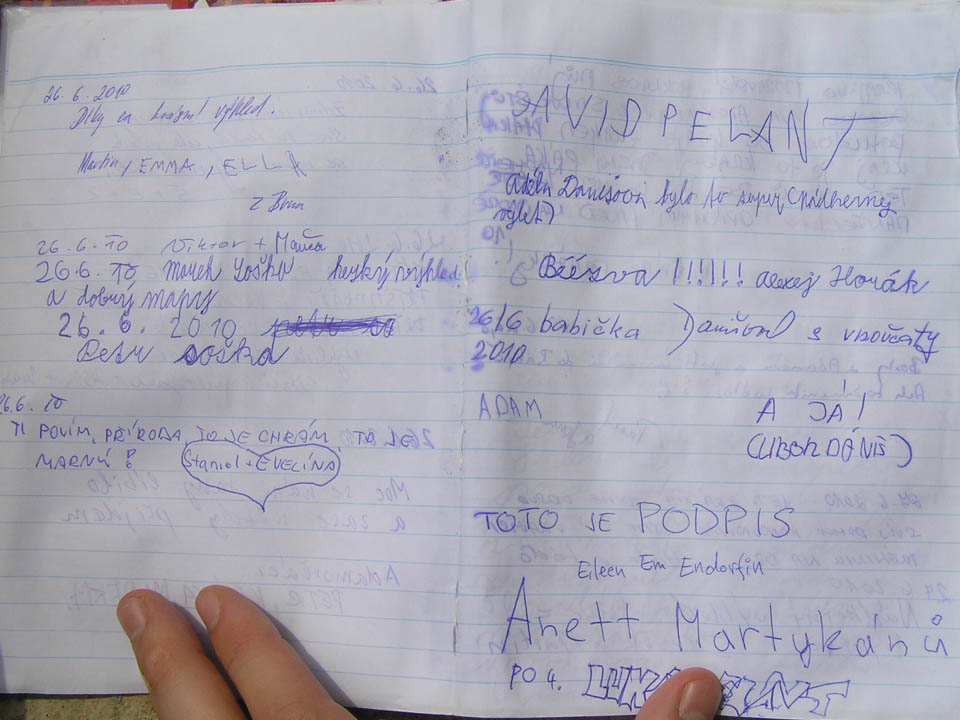 26.6.2010
Díky za krásný výhled.
Martin, EMMA, ELLA
z Brna
26.6.10 Viktor + Manča
26.6.10 Marek Loška hezký rozhled
a dobrý mapy
26.6.2010
Petr Loška
26.6.10
TI POVÍM, PŘÍRODA, TO JE CHRÁM TA JE
MARNÝ!
Staniol + EVELÍNA
DAVID PELANT
bylo to super (nádherný
výlet)
!!!!!! Alexej Horák
26/6 babička s vnoučaty
2010
ADAM A JÁ!
(LIBOR DANIŠ)
TOTO JE PODPIS
Eileen Em Endorfin
Anett Martykánů
PO 4.